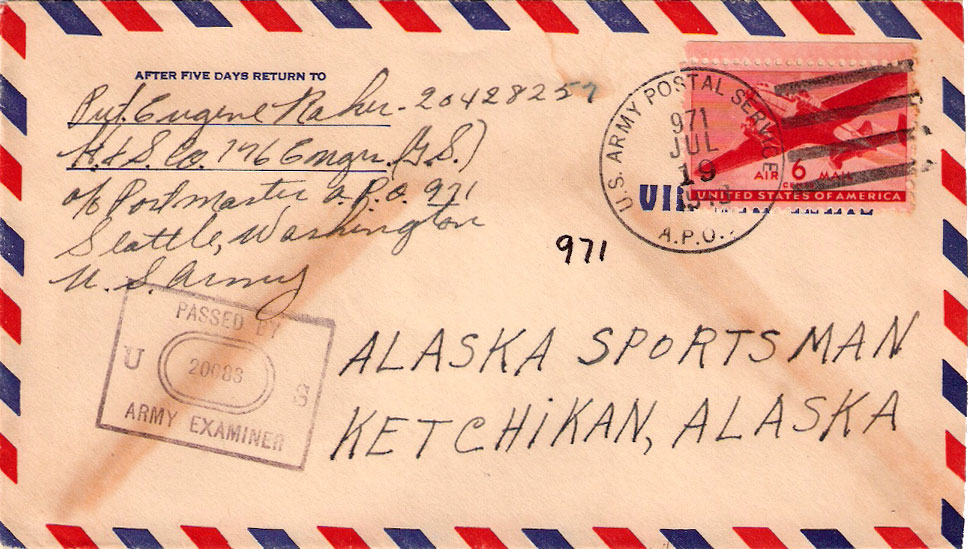 AFTER FIVE DAYS RETURN TO
Pvt. Eugene Raher - 20428257
H. & S. Co. 176 Engrs. (G.S.)
c/o Postmaster A.P.O. 971
Seattle, Washington
U. S. Army
U.S. ARMY POSTAL SERVICE
971
JUL
19
A.P.O.
AIR 6 MAIL
CENTS
UNITED STATES OF AMERICA
971
PASSED BY
U 20083 S
ARMY EXAMINER
ALASKA SPORTSMAN
KETCHiKAN, ALASKA